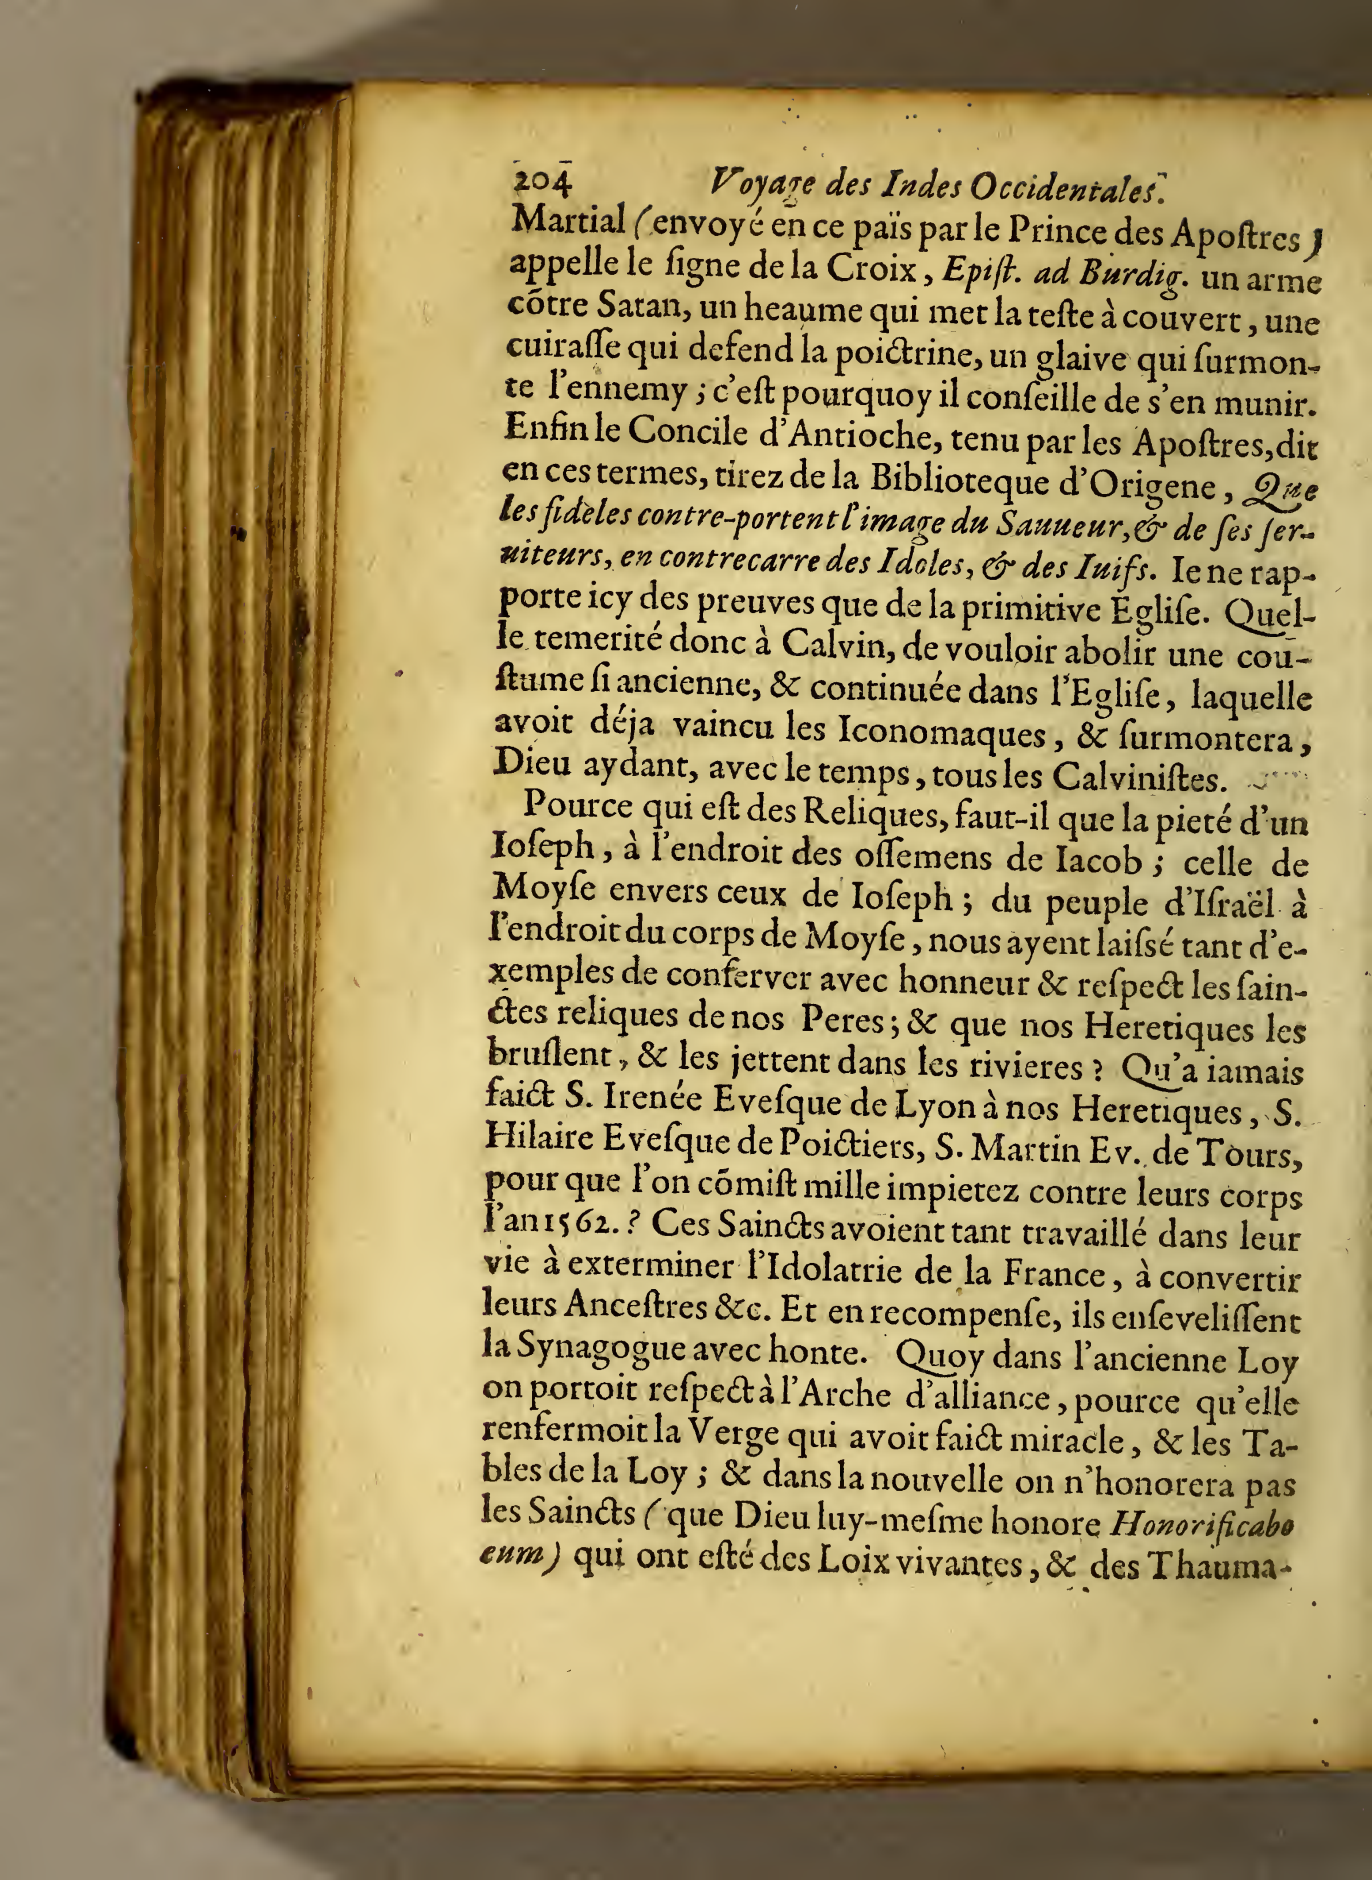 204 Voyage des Indes Occidentales.
Martial (envoyé en ce païs par le Prince des Apoſtres)
appelle le ſigne de la Croix, Epiſt. ad Burdig. un arme
cōtre Satan, un heaume qui met la teſte à couvert, une
cuiraſſe qui defend la poictrine, un glaive qui ſurmon-
te l'ennemy ; c'eſt pourquoy il conſeille de s'en munir.
Enfin le Concile d'Antioche, tenu par les Apoſtres, dit
en ces termes, tirez de la Biblioteque d'Origene, Que
les fidèles contre-portent l'image du Sauueur, & de ſes ſer-
uiteurs, en contrecarre des Idoles, & des Iuifs. Ie ne rap-
porte icy des preuves que de la primitive Egliſe. Quel-
le temerité donc à Calvin, de vouloir abolir une cou-
ſtume ſi ancienne, & continuée dans l'Egliſe, laquelle
avoit déja vaincu les Iconomaques, & ſurmontera,
Dieu aydant, avec le temps, tous les Calviniſtes.
Pource qui eſt des Reliques, faut-il que la pieté d'un
Ioſeph, à l'endroit des oſſemens de Iacob ; celle de
Moyſe envers ceux de Ioſeph ; du peuple d'Iſraël à
l'endroit du corps de Moyſe, nous ayent laiſsé tant d'e-
xemples de conſerver avec honneur & reſpect les ſain-
ctes reliques de nos Peres ; & que nos Heretiques les
bruſlent, & les jettent dans les rivieres ? Qu'a iamais
faict S. Irenée Eveſque de Lyon à nos Heretiques, S.
Hilaire Eveſque de Poictiers, S. Martin Ev. de Tours,
pour que l'on cōmiſt mille impietez contre leurs corps
l'an 1562. ? Ces Saincts avoient tant travaillé dans leur
vie à exterminer l'Idolatrie de la France, à convertir
leurs Anceſtres &c. Et en recompenſe, ils enſeveliſſent
la Synagogue avec honte. Quoy dans l'ancienne Loy
on portoit reſpect à l'Arche d'alliance, pource qu'elle
renfermoit la Verge qui avoit faict miracle, & les Ta-
bles de la Loy ; & dans la nouvelle on n'honorera pas
les Saincts (que Dieu luy-meſme honore Honorificabo
eum) qui ont eſté des Loix vivantes, & des Thauma-